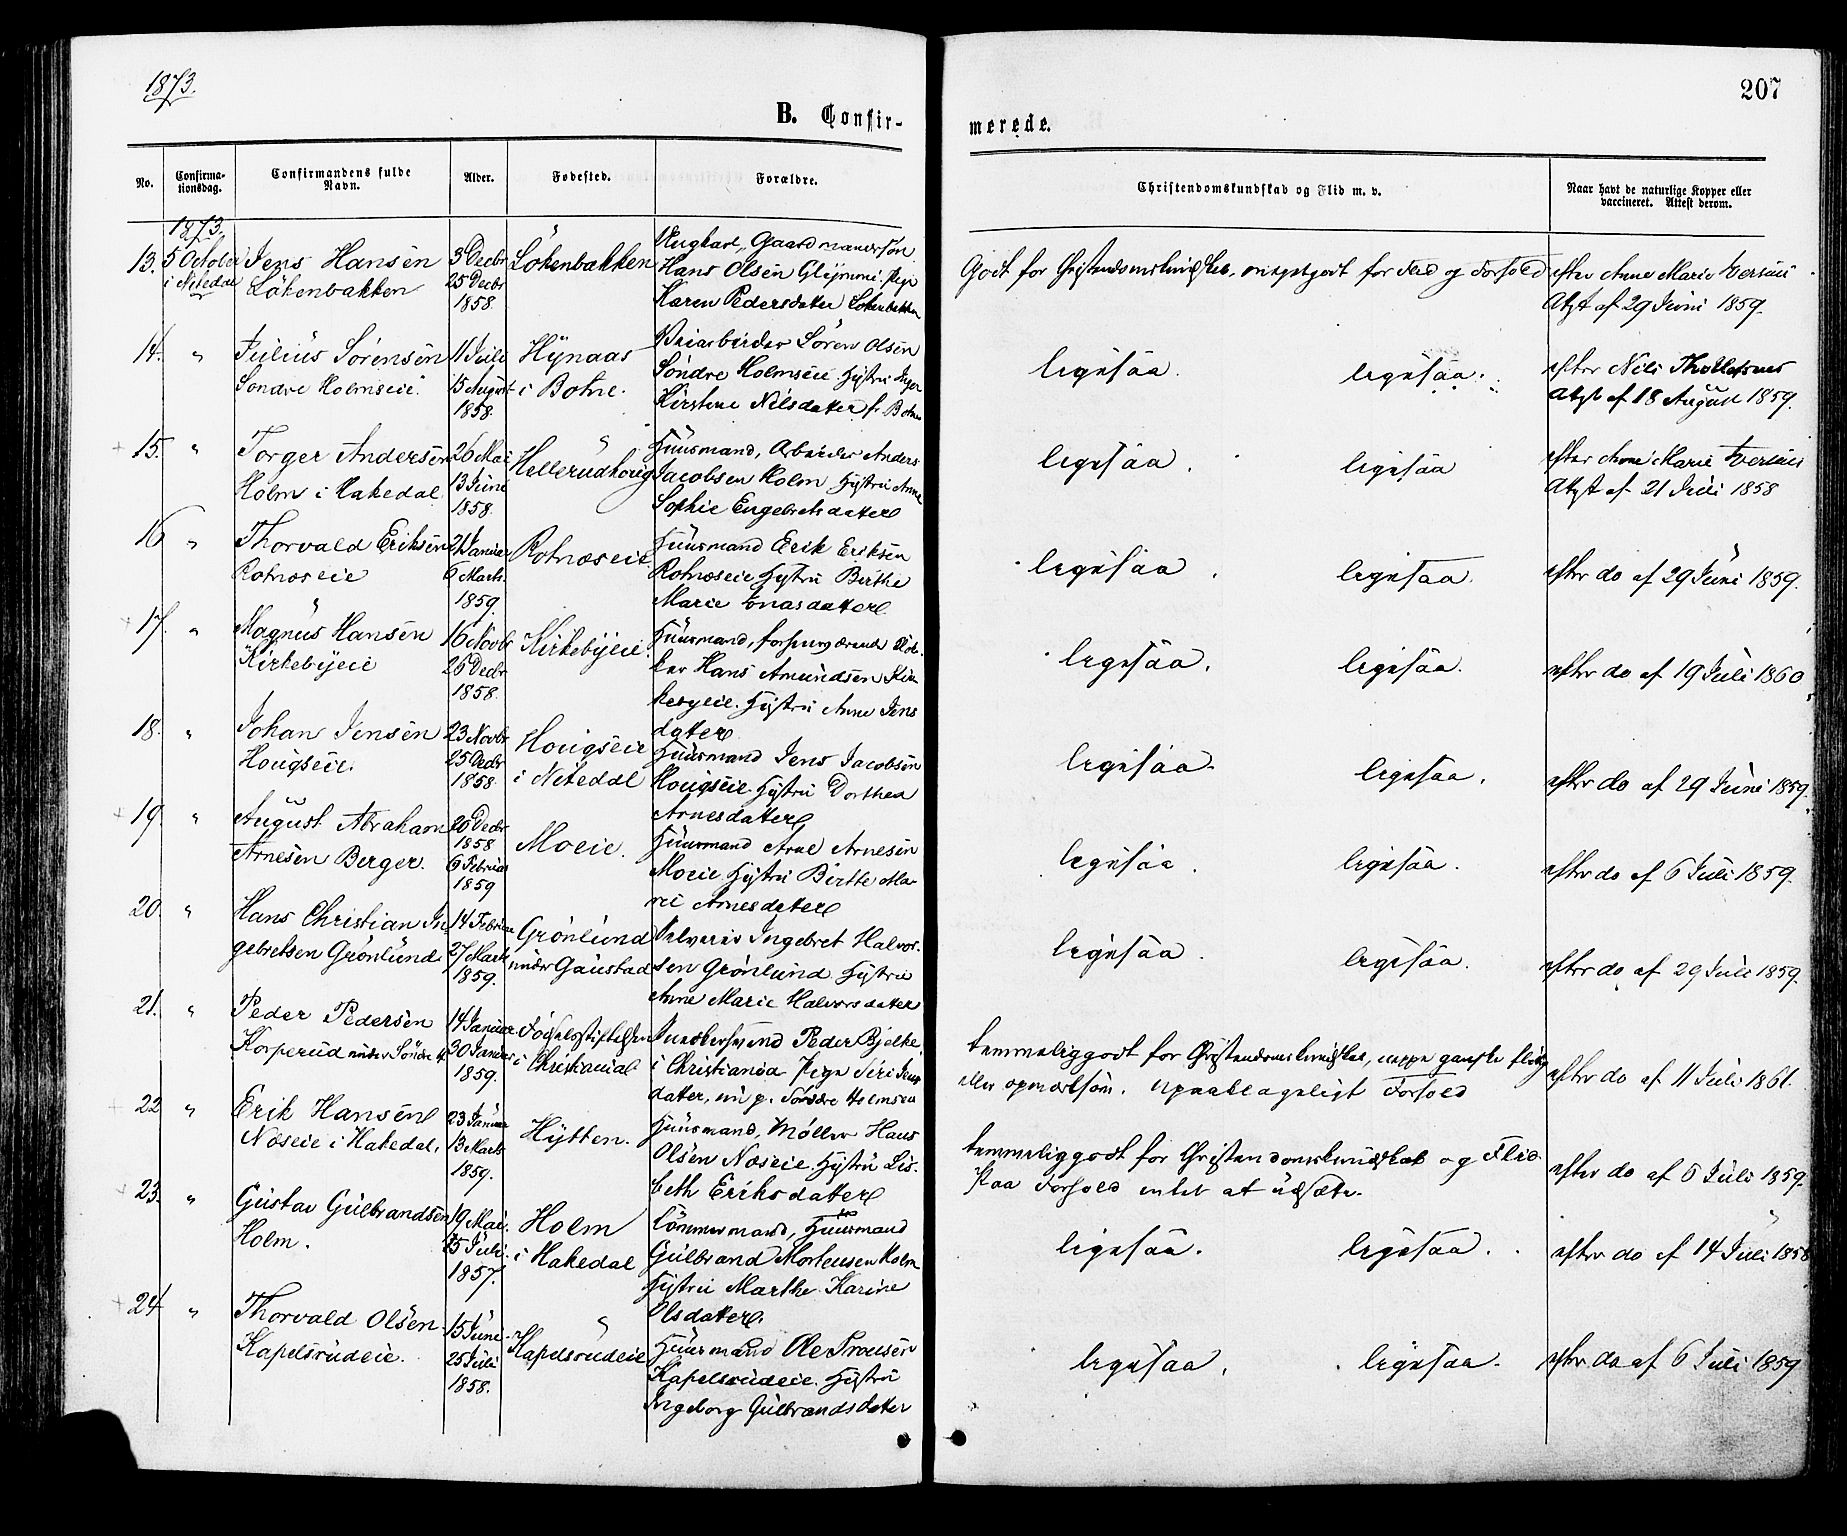 1873.
207
B. Confir-
merede.
No.
Confirma-
tionsdag.
Confirmandens fulde
Navn.
Alder.
Fødested.
Forældre.
Christendomskundskab og Flid m. v.
Naar havt de naturlige Kopper eller
vaccineret. Attest derom.
1873.
13. 5 October
i Nitedal
Jens Hansen
Lökenbakken
3 Decbr
25 Decbr
1858.
Lökenbakken
Ungkarl, Gaardmandssøn
Hans Olsen Pige
Karen Pedersdatter Lökenbakken
Godt for Christendomskundskab, meget godt for Flid og Forhold
efter Anne Marie Iversens
Atst af 29 Juni 1859.
14. "
Julius Sørensen
Søndre Holmseie.
11 Juli
15 August
1858.
Hynaas
i Botne.
Veiarbeider Søren Olsen
Søndre Holmseie Hustru Inger
Kirstine Nilsdatter f. Botne
ligesaa. ligesaa.
efter Nils Thollefsens
Atst af 18 August 1859.
15. "
Torger Andersen
Holm i Hakedal
26 Mai
13 Juni
1858.
Hellerudhoug
Huusmand, Arbeider Anders
Jacobsen Holm Hustru Anne
Sophie Engebretsdatter
ligesaa. ligesaa
efter Anne Marie Iversens
Atst af 21 Juli 1858
16 "
Thorvald Eriksen
Rotnæseie
21 Januar
6 Marts.
1859.
Rotnæseie
Huusmand Erik Eriksen
Rotnæseie Hustru Birthe
Marie Jonasdatter
ligesaa. ligesaa.
efter do af 29 Juni 1859.
17. "
Magnus Hansen
Kirkebyeie
16 Novbr
25 Decbr
1858.
Kirkebyeie.
Huusmand, forhenværende
Hans Amundsen Kir-
kebyeie. Hustru Anne Jens
datter
ligesaa. ligesaa.
efter do af 19 Juli 1860
18. "
Johan Jensen
Hougseie.
23 Novbr
25 Decbr
1858.
Hougseie
i Nitedal
Huusmand Jens Jacobsen
Hougseie Hustru Dorthea
Arnesdatter
ligesaa. ligesaa.
efter do af 29 Juni 1859.
19. "
August Abraham
Arnesen Berger.
20 Decbr
1858
6 Februar
1859
Moeie.
Huusmand Arne Arnesen
Moeie Hustru Birthe Ma-
rie Arnesdatter
ligesaa. ligesaa.
efter do af 6 Juli 1859.
20. "
Hans Christian In
gebretsen Grønlund.
14 Februar
27 Marts
1859.
Grönlund
under Gaustad
Selveier Ingebret Halvor-
sen Grønlund Hustru
Anne Marie Halvorsdatter
ligesaa. ligesaa.
efter do af 29 Juli 1859.
21. "
Peder Pedersen
Korperud under Søndre H.
14 Januar
30 Januar
1859.
Fødselsstiftelsen
i Christiania
Peder Bjelke
i Christiania Pige Siri Jens
datter, Søndre Holmseie
temmelig godt for Christendomskundskab, neppe ganske flittig
eller opmærksom. upaaklageligt Forhold
efter do af 11 Juli 1861.
22 "
Erik Hansen
Næseie i Hakedal.
23 Januar
13 Marts
1859.
Hytten.
Huusmand, Møller Hans
Olsen Næseie. Hustru Lis-
beth Eriksdatter
temmelig godt for Christendomskundskab og Flid.
Paa Forhold intet at udsætte.
efter do af 6 Juli 1859.
23. "
Gustav Gulbrandsen
Holm.
19 Mai.
25 Juli.
1857.
Holm
i Hakedal
Tømmermand, Huusmand
Gulbrand Mortensen Holm
Hustru Marthe Karine
Olsdatter.
ligesaa. ligesaa.
efter do af 14 Juli 1858
24 "
Thorvald Olsen
Kapelsrudeie.
15 Juni
25 Juli
1858.
Kapelsrudeie
Huusmand Ole
Kapelsrudeie. Hustru
Ingeborg Gulbrandsdatter
ligesaa. ligesaa.
efter do af 6 Juli 1859